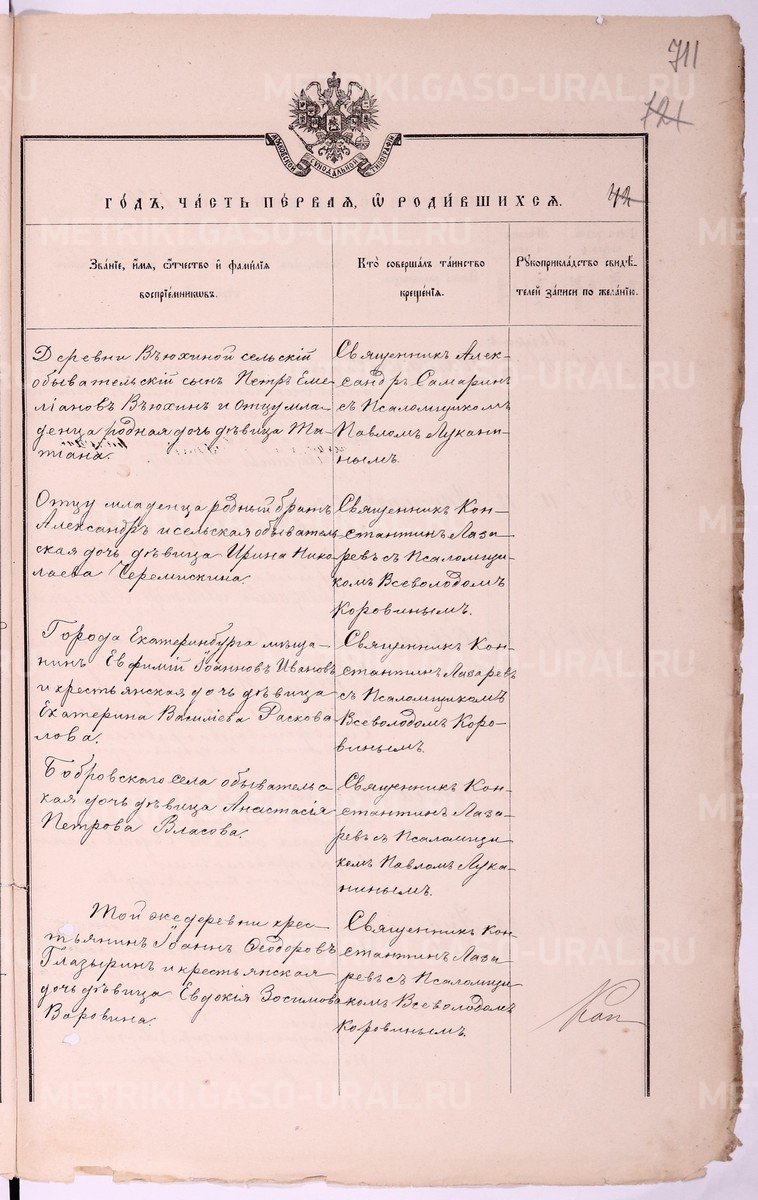 711
721
МОСКОВСКОЙ СѴНОДАЛЬНОЙ ТИПОГРАФІИ
Го́дъ, ча́сть пе́рвая, ѡ роди́вшихся.
42
Зва́нїе, и҆́мѧ, ѻ҆́тчество и҆ фами́лїѧ
воспрїе́мникωвъ.
Кто̀ соверша́лъ та́инство
креще́нїѧ.
Рꙋкоприкла́дство свидѣ́-
телей за́писи по жела́нїю.
Деревни Вьюхиной сельскій
обывательскій сынъ Петръ Еме
ліановъ Вьюхинъ и отцу мла-
денца родная дочь дѣвица Та-
тіана.
Священникъ Алек-
сандръ Самаринъ
съ Псаломщикомъ
Павломъ Лукани-
нымъ.
Отцу младенца родный братъ
Александръ и сельская обыватель
ская дочь дѣвица Ирина Нико
лаева Черемискина.
Священникъ Кон-
стантинъ Лаза
ревъ съ Псаломщи-
комъ Всеволодомъ
Коровинымъ.
Города Екатеринбурга мѣща-
нинъ Евфимій Іоанновъ Ивановъ
и крестьянская дочь дѣвица
Екатерина Василіева Раскова
лова.
Священникъ Кон-
стантинъ Лазаревъ
съ Псаломщикомъ
Всеволодомъ Коро-
винымъ.
Бобровскаго села обывательс
кая дочь дѣвица Анастасія
Петрова Власова.
Священникъ Кон-
стантинъ Лаза-
ревъ съ Псаломщи-
комъ Павломъ Лука-
нинымъ.
Той же деревни крес-
тьянинъ Іоаннъ Ѳеодоровъ
Глазыринъ и крестьянская
дочь дѣвица Евдокія Зосимова
Воровина.
Священникъ Кон
стантинъ Лаза-
ревъ съ Псаломщи-
комъ Всеволодомъ
Коровинымъ.
Коп
METRIKI.GASO-URAL.RU